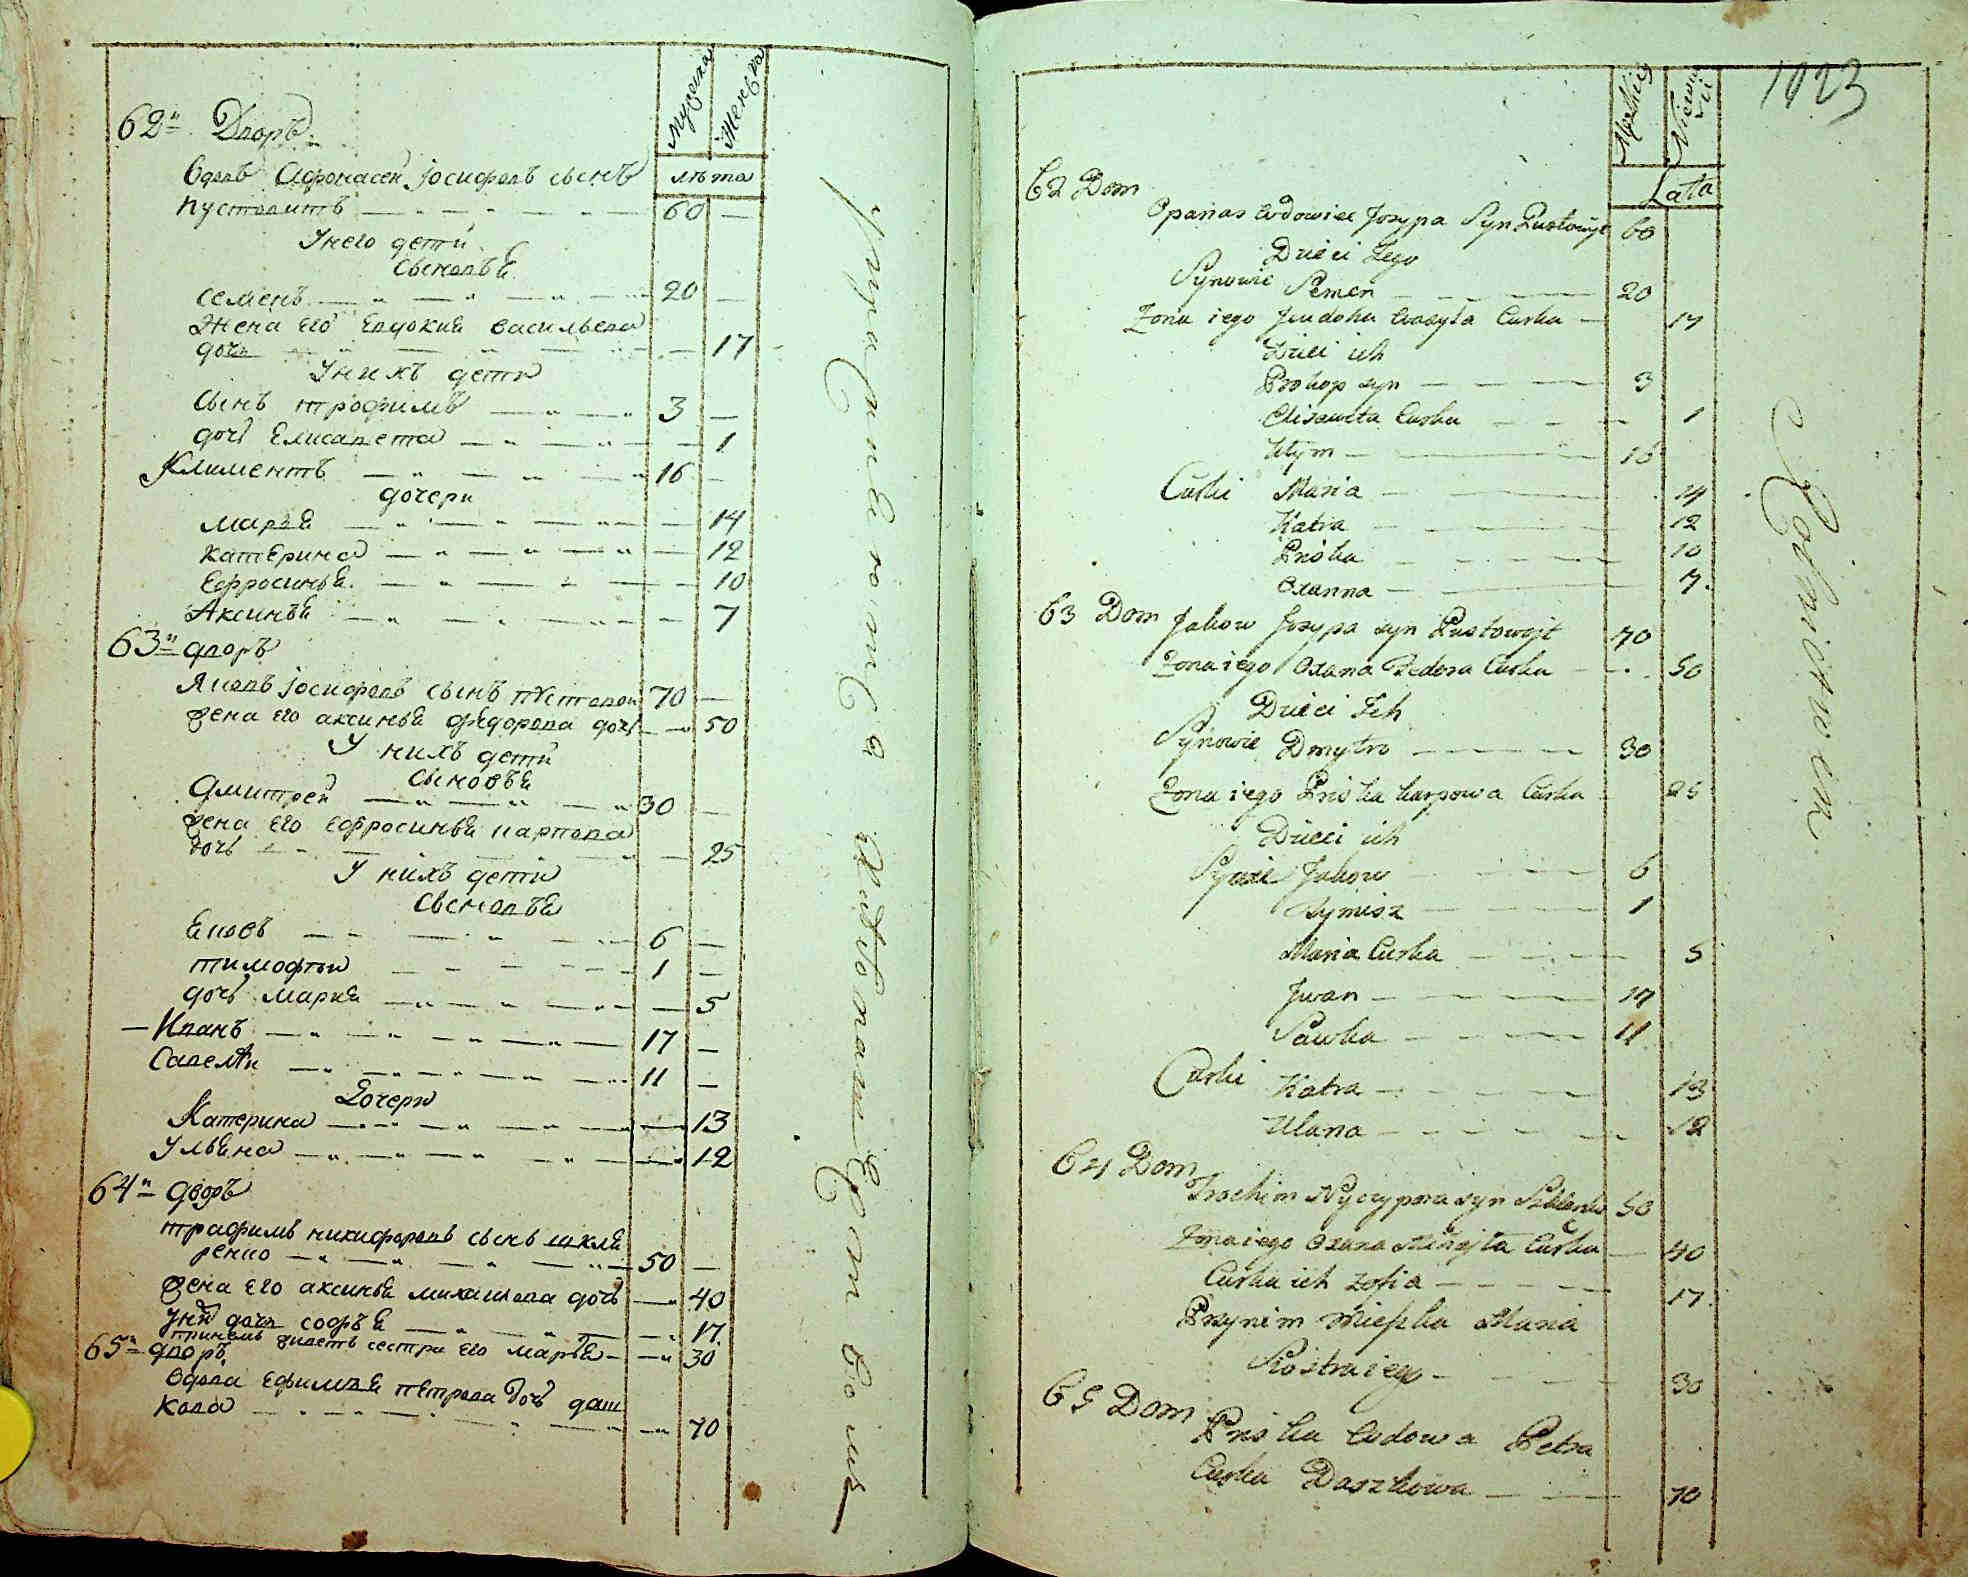 Мужеска Женьска
лѣта
62й Дворъ
Вдовъ Афонасей Јосифовъ сынъ
Пустовитъ 60
У него дети
сыновья
Семенъ 20
Жена его Евдокия Васильева
дочь 17
У нихъ дети
Сынъ Трофимъ 3
дочь Елисавета 1
Климентъ 16
дочери
Марья 14
Катерина 12
Ефросинья 10
Аксинья 7
63й дворъ
Яковъ Јосифовъ сынъ Пустовой 70
жена его Аксинья Федорова дочь 50
У нихъ дети
сыновья
Дмитрей 30
жена его Ефросинья Карпова
дочь 25
У нихъ дети
Сыновья
Яковъ 6
Тимофѣй 1
дочь Мария 5
Иванъ 17
Савелѣй 11
Дочери
Катерина 13
Ульяна 12
64й дворъ
Трафимъ Никифоровъ сынъ Шкля
ренко 50
жена его Аксинья Михайлова дочь 40
дочь Софья 17
живетъ сестра его Марья 30
65й дворъ
Вдова Ефимья Петрова дочь Даш
кова 70
1023
Lata
62 Dom
Opanas Wdowiec Josypa Syn Pustowyt 60
Dzieci Jego
Synowie Semen 20
Zona iego Jewdoha Wasyla Curka 17
Dzieci ich
Prokop syn 3
Elisaweta Curka 1
Klym 16
Curki Maria 14
Katra 12
Priska 10
Oxanna 7
63 Dom Jakow Josypa syn Pustowojt 70
Zona iego Oxana Fedora Curka 50
Dzieci Ich
Synowie Dmytro 30
Zona iego Priska Karpowa Curka 25
Dzieci ich
Synowie Jakow 6
Tymisz 1
Maria Curka 5
Jwan 17
Sawka 11
Curki Katra 13
Ulana 12
64 Dom
Trochim Nyczypora syn 50
Zona iego Oxana Curka 40
Curka ich Zofia 17
Przy nim Mieszka Maria
Siostra iego 30
65 Dom
Priska Wdowa Petra
Curka Daszkowa 70